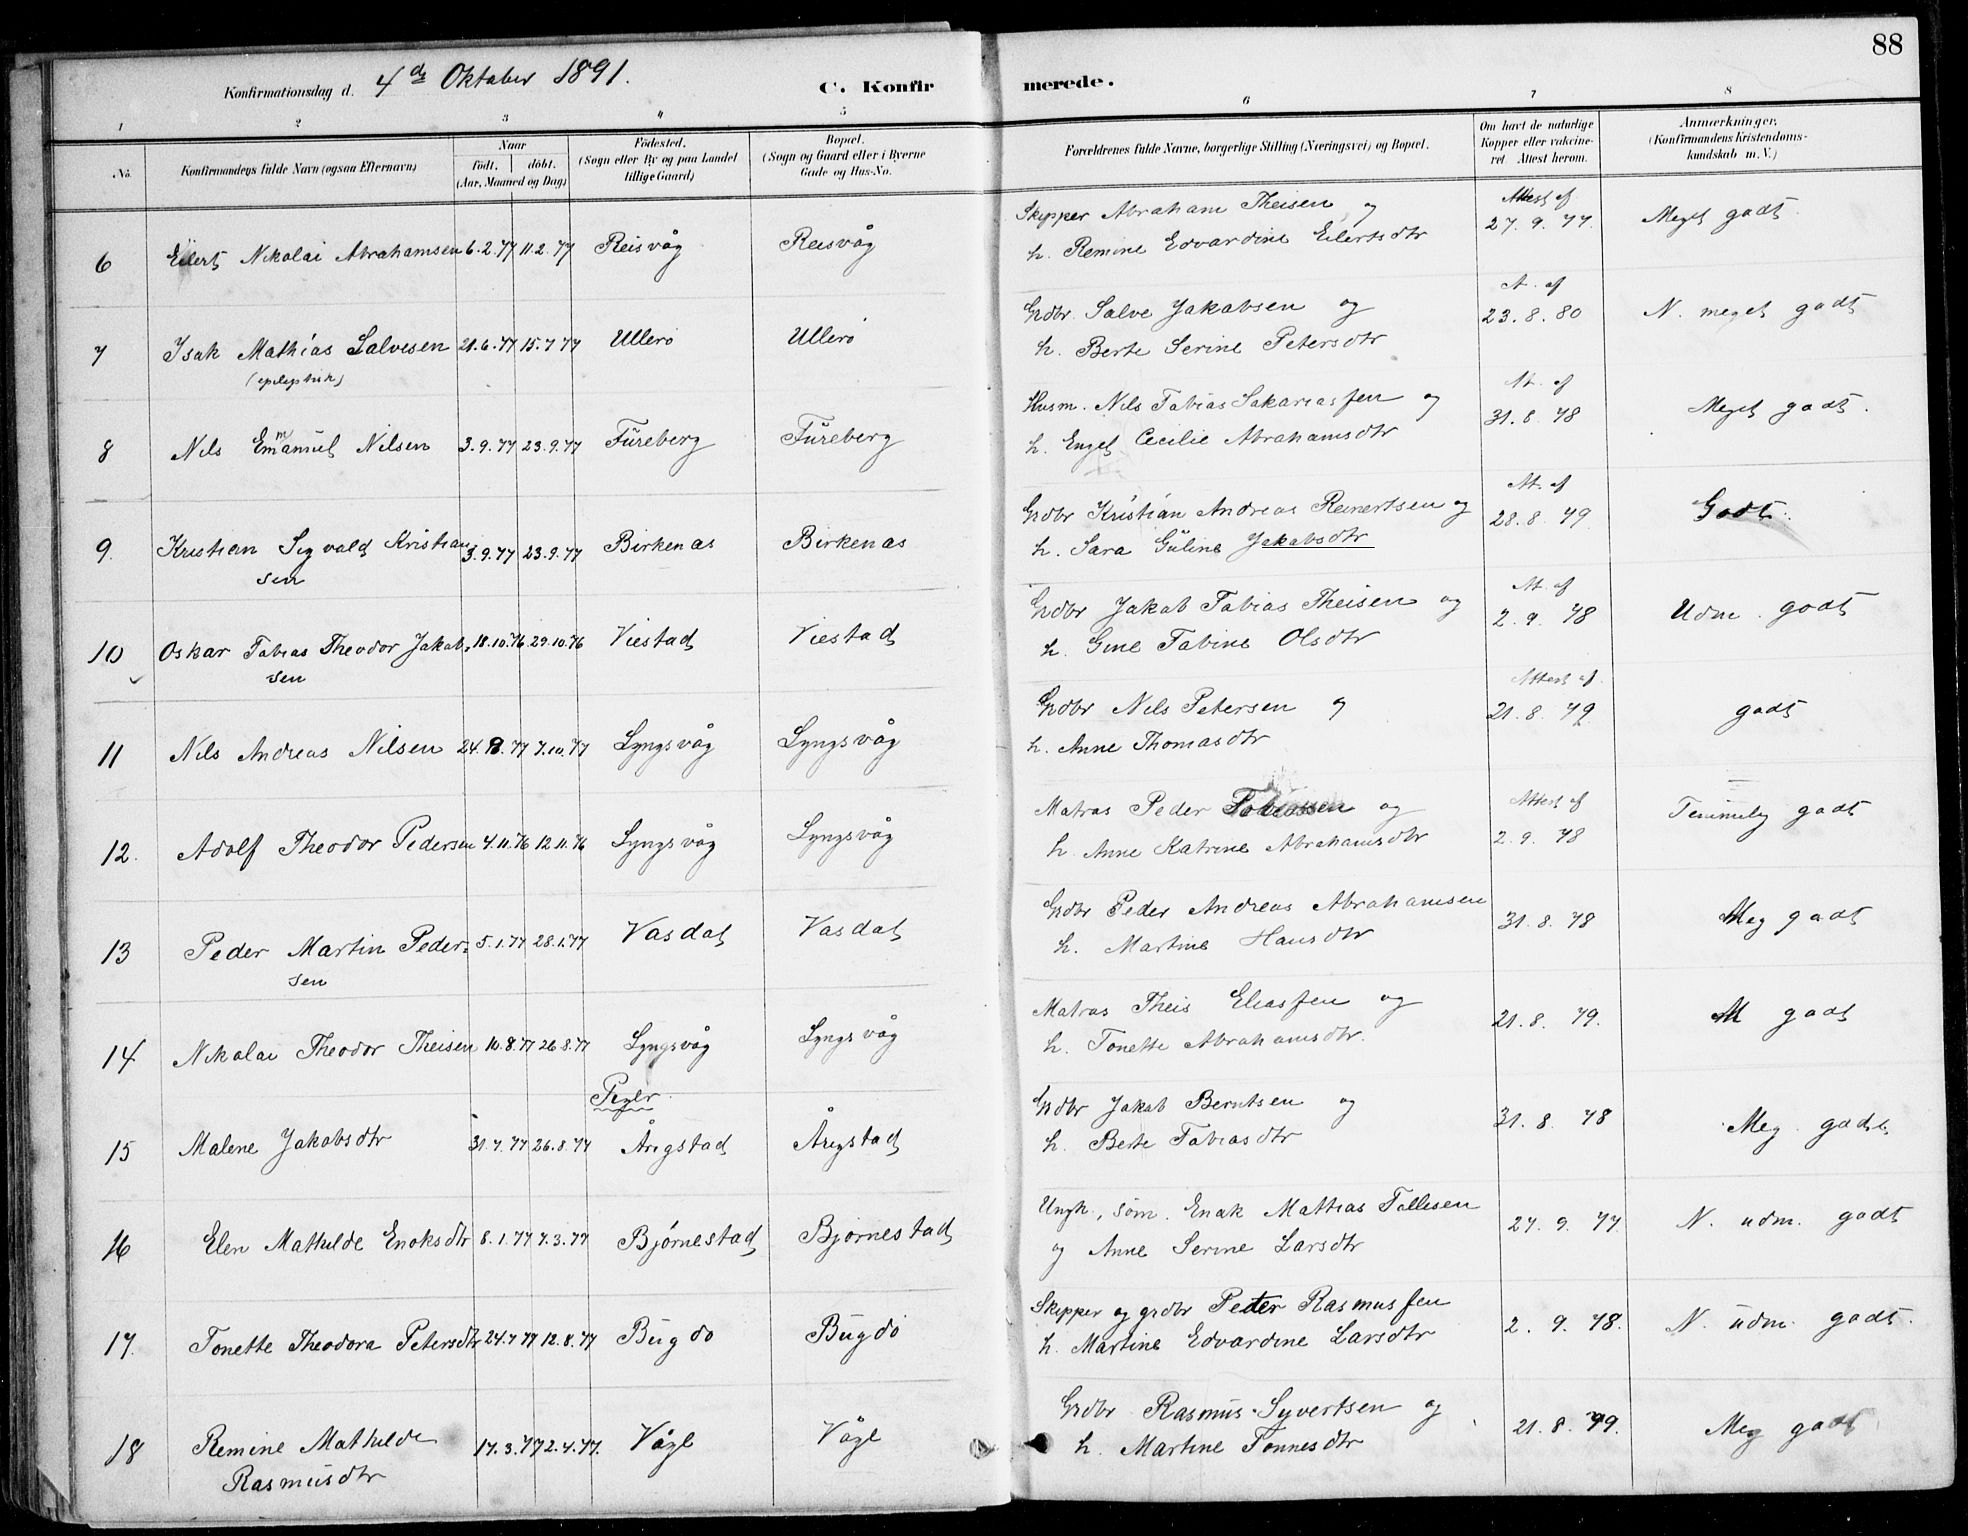 88
Konfirmationsdag d. 4de Oktober 1891. C. Konfirmerede.
1 2 3 4 5 6 7 8
No. Konfirmandens fulde Navn (ogsaa Efternavn) Naar født. døbt. (Aar, Maaned og Dag) Fødested. (Sogn eller By og paa Landet tillige Gaard) Bopæl. (Sogn og Gaard eller i Byerne Gade og Hus-No. Forældrenes fulde Navne, borgerlige Stilling (Næringsvei) og Bopæl. Om havt de naturlige Kopper eller vakcineret. Attest herom. Anmærkninger. (Konfirmandens Kristendomskundskab m. V.)
6 Eilert Nikolai Abrahamsen 6.2.77 11.2.77 Reisvåg Reisvåg Skipper Abraham Theisen og Attest af 27.9.77. Meget godt.
h. Remine Edvardine Eilertsdtr
7 Isak Mathias Salvesen 21.6.77 15.7.77 Ullerö Ullerö Grdbr. Salve Jakobsen og At. af 23.8.80 N. meget godt
(epileptisk) h. Berte Serine Petersdtr
8 Nils Emmanuel Nilsen 3.9.77 23.9.77 Füreberg Füreberg Husm. Nils Tobias Sakariassen og At. af 31.8.78 Meget godt.
h. Engel Cecilie Abrahamsdtr
9. Kristian Sigvald Kristian 3.9.77 23.9.77 Birkenas Birkenas Grdbr Kristian Andreas Reinertsen og At. af 28.8.79. Godt.
sen h. Sara Güline Jakobsdtr
10 Oskar Tobias Theodor Jakob, 18.10.76 29.10.76 Viestad Viestad Grdbr Jakob Tobias Theisen og At. af 2.9.78 Udm. godt
sen h. Gine Tobine Olsdtr
11 Nils Andreas Nilsen 24.8.77 7.10.77 Lyngsvåg Lyngsvåg Grdbr Nils Petersen og Attest af. 21.8.79 godt
h. Anne Thomasdtr
12. Adolf Theodor Pedersen 4.11.76 12.11.76 Lyngsvåg Lyngsvåg Matros Peder Tobiassen og Attest af 2.9.78 Temmelig godt
h. Anne Katrine Abrahamsdtr
13 Peder Martin Peder, 5.1.77 28.1.77 Vasdal Vasdal Grdbr Peder Andreas Abrahamsen 31.8.78 Meg godt
sen h. Martine Hansdtr
14 Nikolai Theodor Theisen 10.8.77 26.8.77 Lyngsvåg Lyngsvåg Matros Theis Eliassen og 21.8.79. M godt
h. Tonette Abrahamsdtr.
Piger
15 Malene Jakobsdtr 31.7.77 26.8.77 Årigstad Årigstad Grdbr Jakob Berntsen og 31.8.78 Meg. godt.
h. Berte Tobiasdtr
16 Elen Mathilde Enoksdtr 8.1.77 7.3.77 Bjørnestad Bjørnestad Ungk., søm. Enok Mathias Tollesen 27.9.77 N. udm. godt
og Anne Serine Larsdtr
17. Tonette Theodora Petersdtr 24.7.77 12.8.77 Bügdö Bügdö Skipper og grdbr Peter Rasmussen 2.9.78. N. üdm. godt.
h. Martine Edvardine Larsdtr
18 Remine Mathilde 17.3.77 2.4.77. Vågl Vågl Grdbr Rasmus Syvertsen og 21.8.79. Meg godt
Rasmüsdtr h. Martine Tönnesdtr